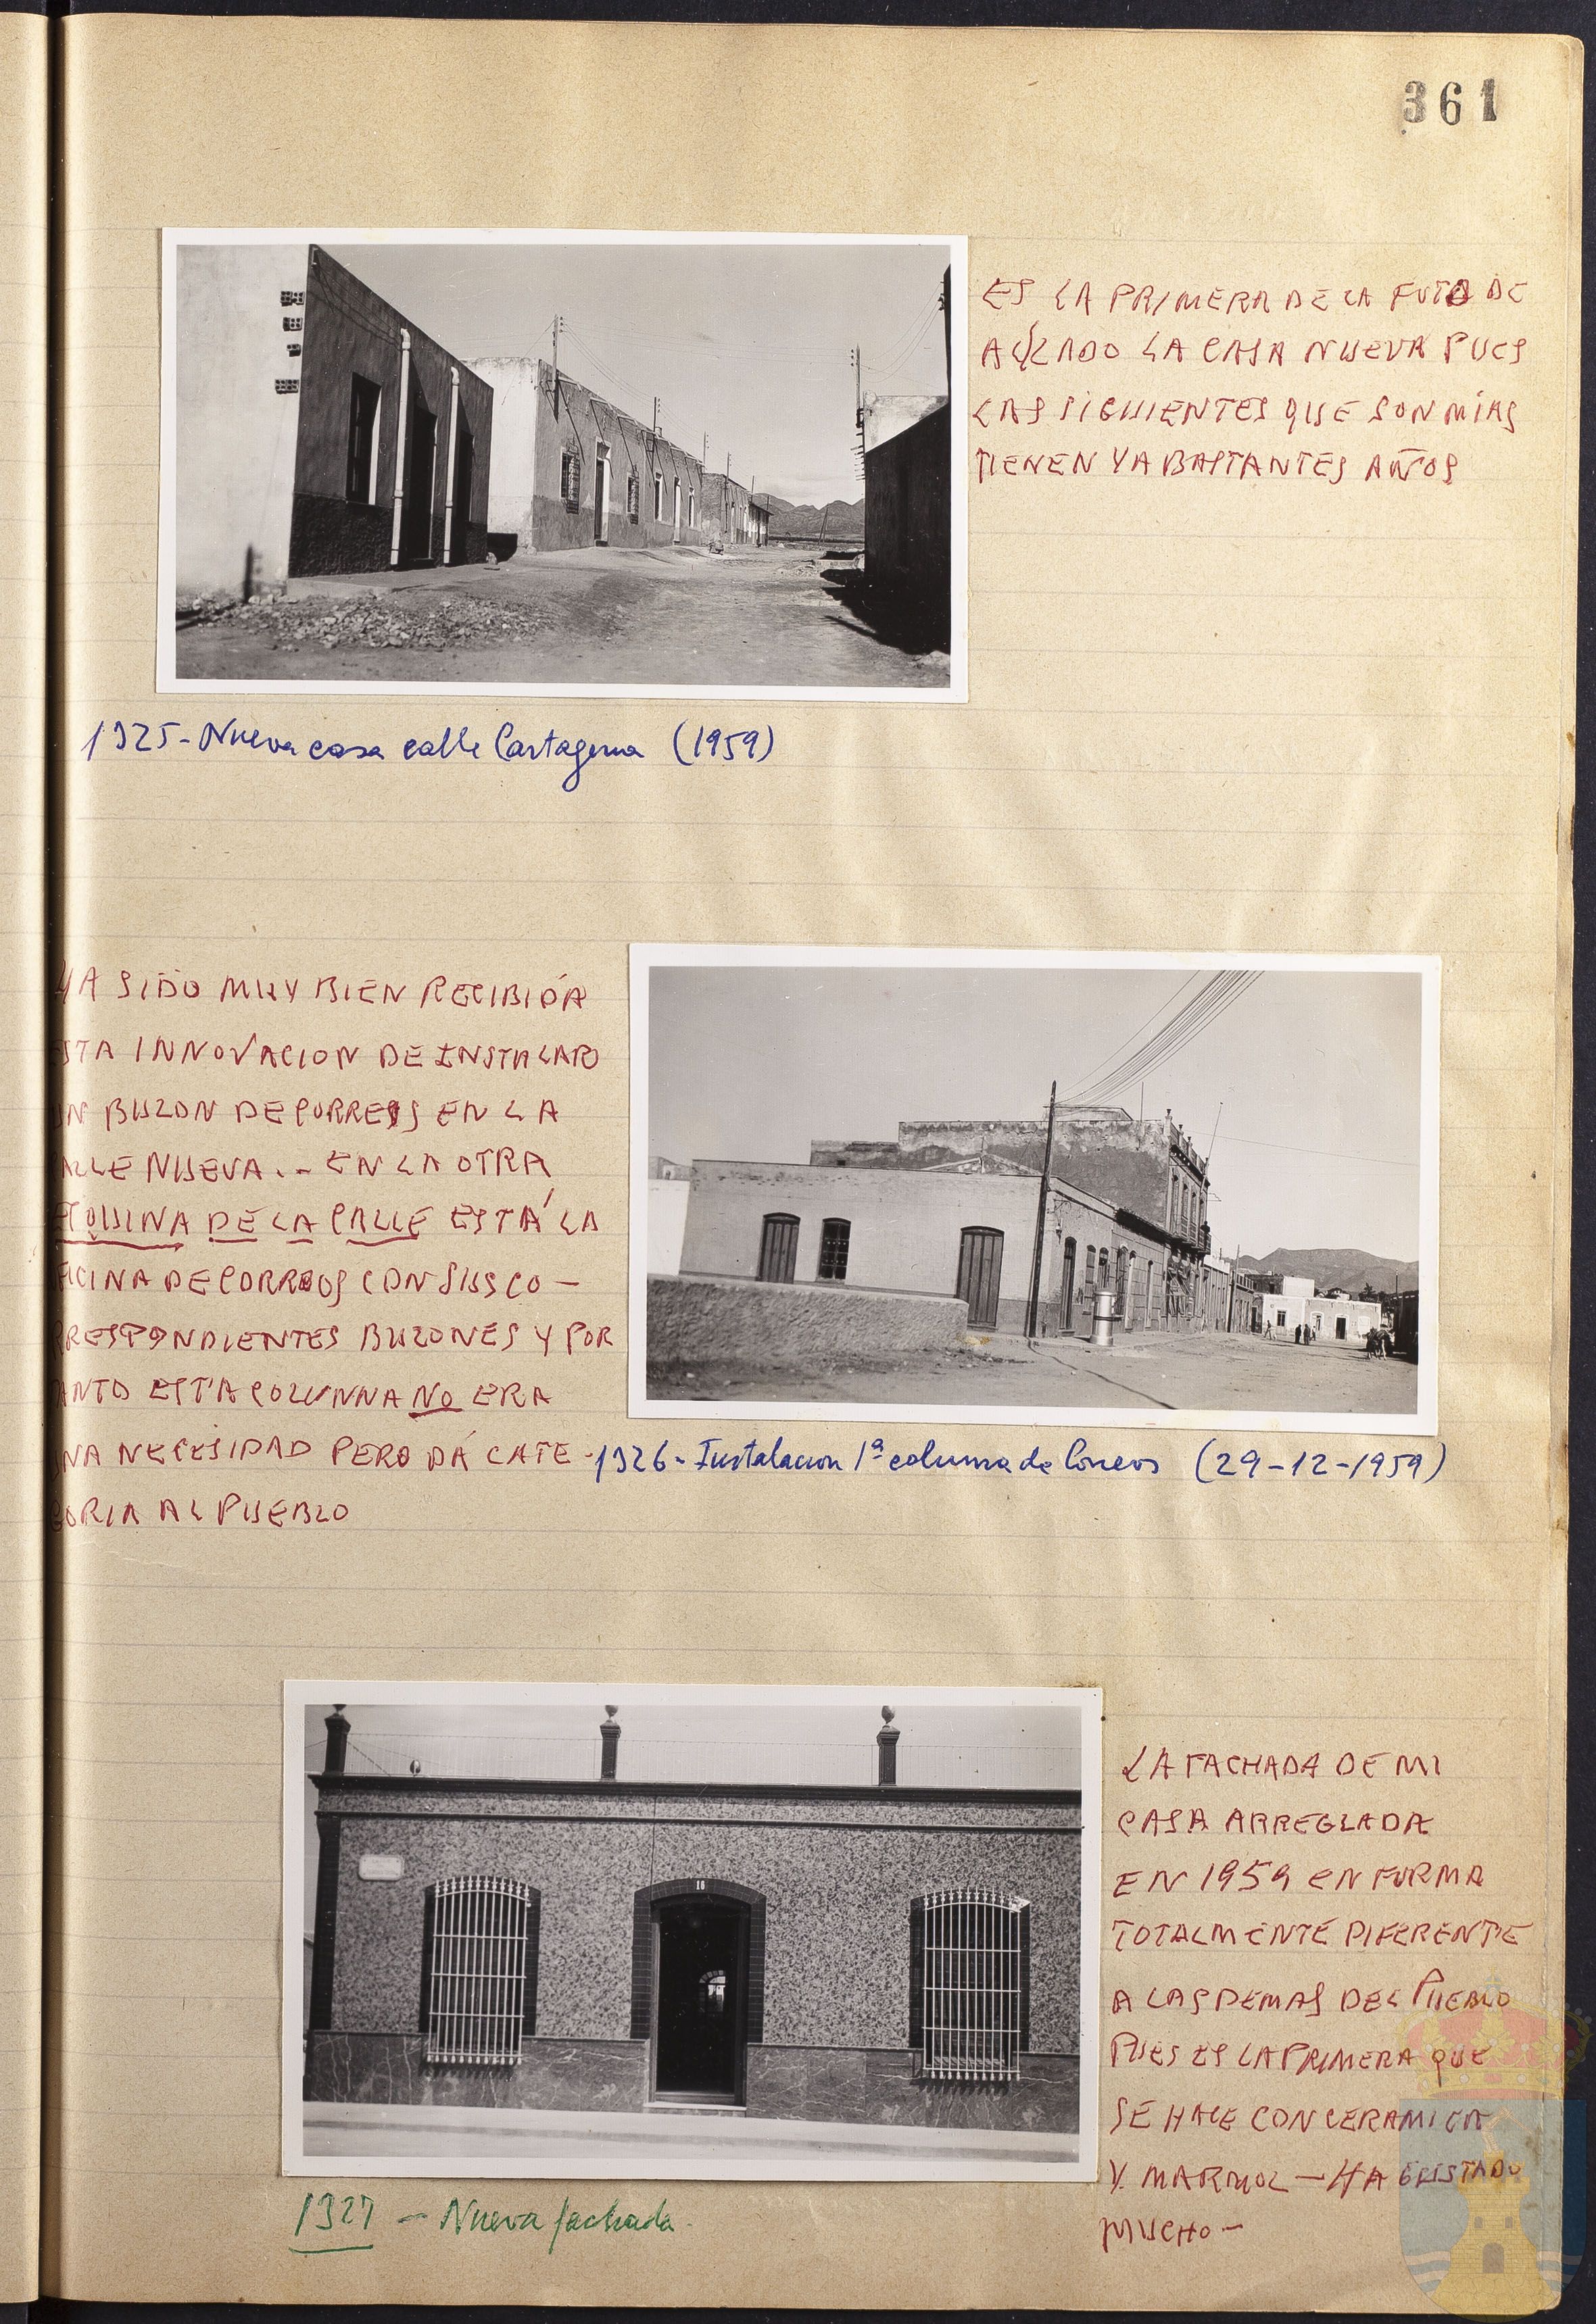 361
ES LA PRIMERA DE LA FOTO DE
AL LADO LA CASA NUEVA PUES
LAS SIGUIENTES QUE SON MÍAS
TIENEN YA BASTANTES AÑOS
1325 - Nueva casa calle Cartagena (1959)
HA SIDO MUY BIEN RECIBIDA
STA INNOVACION DE INSTALAR
UN BUZON DE CORREOS EN LA
ALLE NUEVA.- EN LA OTRA
ESQUINA DE LA CALLE ESTÁ LA
FICINA DE CORREOS CON SUS CO-
RRESPONDIENTES BUZONES Y POR
ANTO ESTA COLUMNA NO ERA
UNA NECESIDAD PERO DÁ CATE-
GORIA AL PUEBLO
1326 - Instalacion 1ª columna de Correos (29-12-1959)
16
LA FACHADA DE MI
CASA ARREGLADA
EN 1959 EN FORMA
TOTALMENTE DIFERENTE
A LAS DEMAS DEL PUEBLO
PUES ES LA PRIMERA QUE
SE HACE CON CERAMICA
Y MARMOL - HA GUSTADO
MUCHO -
1327 - Nueva fachada.